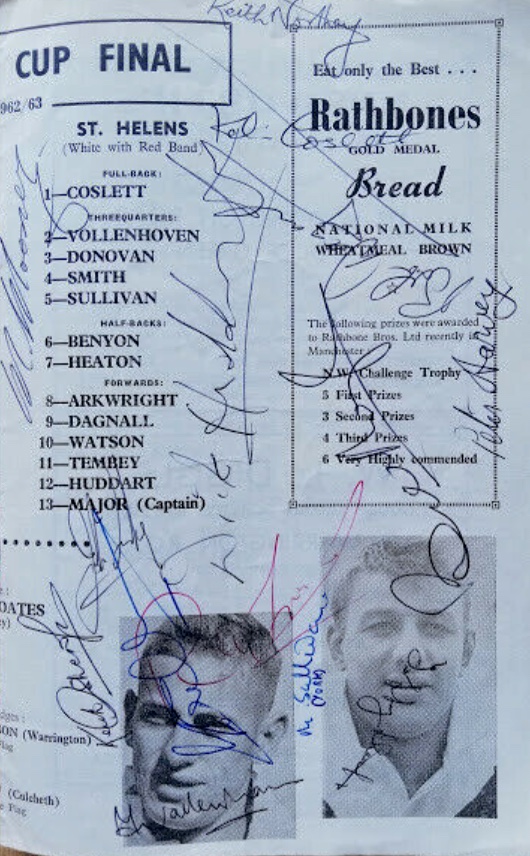 Keith Northey
CUP FINAL
1962/63
ST. HELENS
(White with Red Band)
FULL-BACK:
1—COSLETT
THREEQUARTERS:
2—VOLLENHOVEN
3—DONOVAN
4—SMITH
5—SULLIVAN
HALF-BACKS:
6—BENYON
7—HEATON
FORWARDS:
8—ARKWRIGHT
9—DAGNALL
10—WATSON
11—TEMBEY
12—HUDDART
13—MAJOR (Captain)
Dick Huddart
Kel. Coslett
Eat only the Best . . .
Rathbones
GOLD MEDAL
Bread
NATIONAL MILK
WHEATMEAL BROWN
The following prizes were awarded
to Rathbone Bros. Ltd recently in
Manchester
N.W. Challenge Trophy
5 First Prizes
3 Second Prizes
4 Third Prizes
6 Very Highly commended
Peter Harvey
OATES
ON (Warrington)
(Culcheth)
M Sullivan
(YORK)